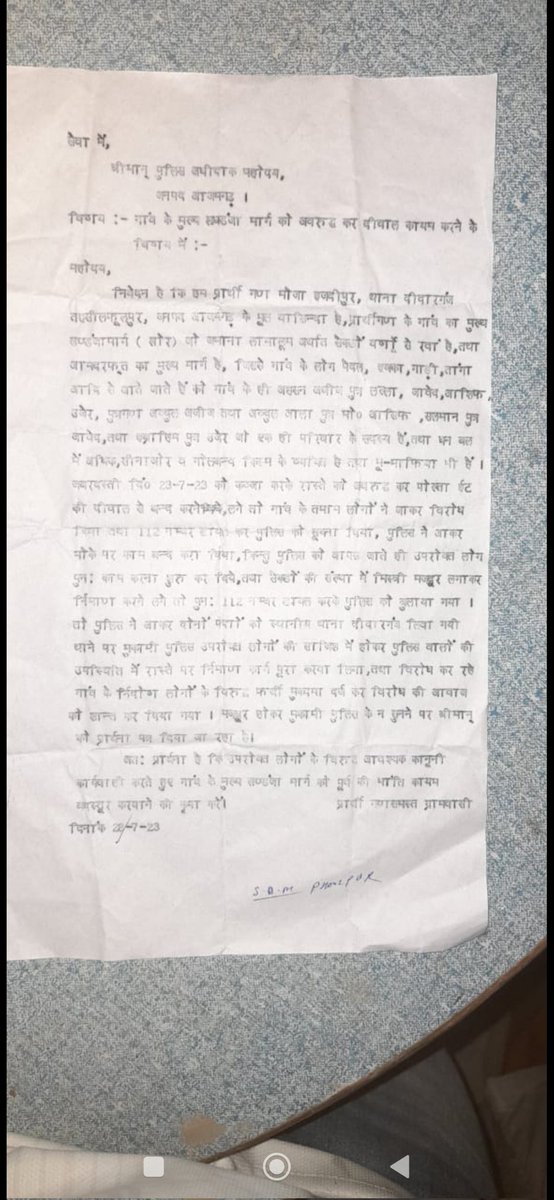 सेवा में,
श्रीमान् पुलिस अधीक्षक महोदय,
जनपद आजमगढ़ ।
विषय :- गांव के मुख्य खण्डंजा मार्ग को अवरूद्ध कर दीवाल कायम करने के
विषय में :-
महोदय,
निवेदन है कि हम प्रार्थी गण मौजा हाजीपुर, थाना दीदारगंज
तहसील फूलपुर, जनपद आजमगढ़ के मूल वासिन्दा है, प्रार्थीगण के गांव का मुख्य
खण्डंजामार्ग ( खोर) जो जमाना लामालूम अर्थात सैकड़ों वर्षों से रवां है, तथा
आमदरफ्त का मुख्य मार्ग है, जिससे गांव के लोग पैदल, इक्का, गाड़ी, तांगा
आदि से आते जाते हैं को गांव के ही अब्दुल अजीज पुत्र जावेद, आसिफ,
उजैर, पुत्रगण अब्दुल अजीज तथा अब्दुल आला पुत्र मो० आसिफ , सलमान पुत्र
जावेद, तथा पुत्र उजैर जो एक ही परिवार के सदस्य हैं, तथा धन बल
में अधिक, सीनाजोर व गोलबन्द किस्म के व्यक्ति है तथा भू-माफिया भी हैं ।
जबरदस्ती दि० 23-7-23 को कब्जा करके रास्ते को अवरूद्ध कर पोख्ता ईट
की दीवाल से बन्द करने लगे तो गांव के तमाम लोगों ने जाकर विरोध
किया तथा 112 नम्बर डायल कर पुलिस को सूचना दिया, पुलिस ने आकर
मौके पर काम बन्द करा दिया, किन्तु पुलिस को वापस जाते ही उपरोक्त लोग
पुन: काम करना शुरू कर दिये, तथा सैकडों की संख्या में मिस्त्री मजदूर लगाकर
र्निमाण करने लगे तो पुन: 112 नम्बर डायल करके पुलिस को बुलाया गया ।
तो पुलिस ने आकर दोनों पक्षों को स्थानीय थाना दीदारगंज लिवा गयी
थाने पर मुकामी पुलिस उपरोक्त लोगों की साजिश में होकर पुलिस वालों की
उपस्थिति में रास्ते पर र्निमाण कार्य पूरा करवा लिया, तथा विरोध कर रहे
गांव के र्निदोश लोगों के विरूद्ध फर्जी मुकदमा दर्ज कर विरोध की आवाज
को शान्त कर दिया गया । मजबूर होकर मुकामी पुलिस के न सुनने पर श्रीमान्
को प्रार्थना पत्र दिया जा रहा है।
अत: प्रार्थना है कि उपरोक्त लोगों के विरूद्ध आवश्यक कानूनी
कार्यवाही करते हुए गांव के मुख्य खण्डंजा मार्ग को पूर्व की भांति कायम
करवाने की कृपा करें। प्रार्थी गण समस्त ग्रामवासी
दिनांक 28-7-23
S D.M PHOOLPUR